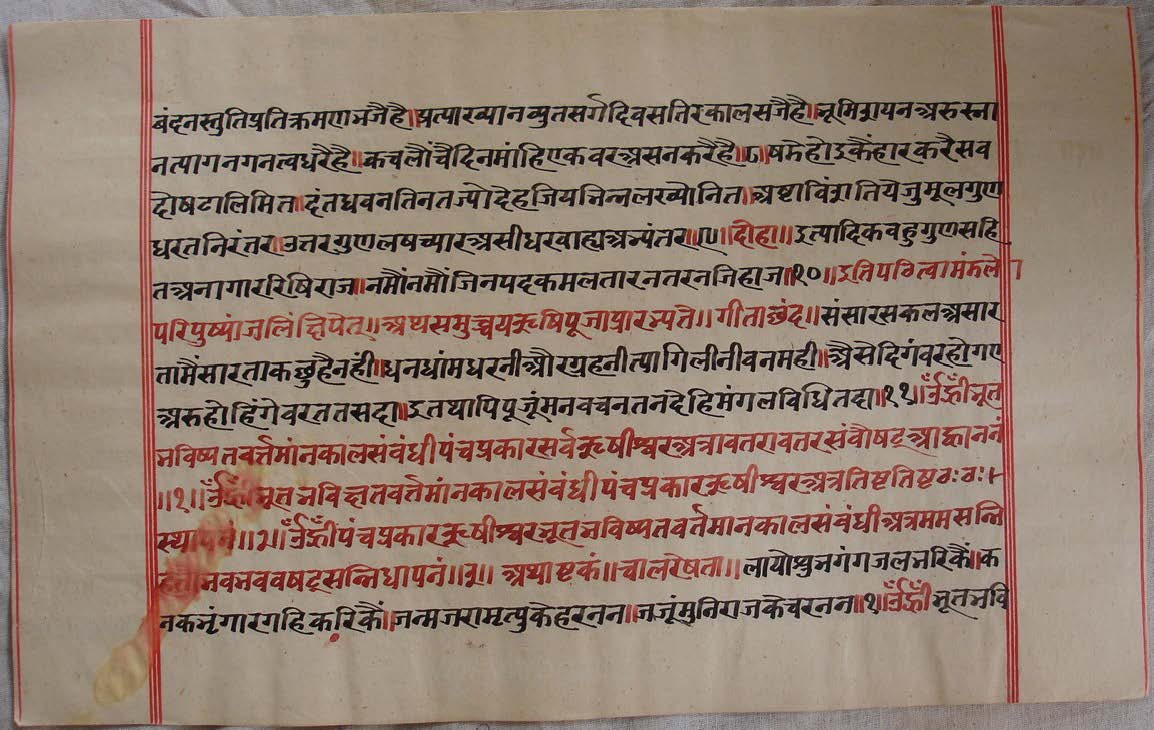 बंदनस्तुतिप्रतिक्रमणभजैहै॥प्रत्याख्यानव्युतसर्गदिवसतिरकालसजैहै॥भूमिशयनअरुस्ना
नत्यागनगनत्वधरैहै॥कचलौंचैदिनमांहिएकवरअसनकरैहै॥८॥षडेहोऽकैंहारकरैसव
दोषटालिमित॥दंतधवनतिनतज्योदेहजियभिन्नलख्योनित॥अष्टाविंशतियेजुमूलगुण
धरतनिरंतर॥उत्तरगुणलषच्यारअसीधरवाह्यअभ्यंतर॥९॥दोहा॥ऽत्यादिकवहुगुणसहि
तअनागाररिषिराज॥नमौंनमौंजिनपदकमलतारनतरनजिहाज॥१०॥ऽतिपठित्वामंडलो
परिपुष्पांजलिंक्षिपेत्॥अथसमुच्चयऋषिपूजाप्रारभ्यते॥गीताछंद॥संसारसकलअसार
तामैंसारताकछुहैनंही॥धनधांमधरनीऔरग्रहनीत्यागिलीनीवनमही॥अैसेदिगंवरहोगए
अरुहोहिंगेवरततसदा॥ऽतथापिपूजूंमनवचनतनदेहिमंगलविधितदा॥११॥ॐह्रीँभूत
भविष्यतवर्त्तमांनकालसंबंधीपंचप्रकारसर्वऋषीश्वरअत्रावतरावतरसंवौषट्आह्वाननं
॥१॥ॐह्रीँभूतभविष्यतवर्तमांनकालसंबंधीपंचप्रकारऋषीश्वरअत्रतिष्टतिष्टठःठः
स्थापनं॥२॥ॐह्रीँपंचप्रकारऋषीश्वरभूतभविष्यतवर्तमानकालसंबंधीअत्रममसन्नि
हतोभवभववषट्सन्निधापनं॥३॥अथाष्टकं॥चालरेषता॥लायोशुभगंगजलभरिकैं॥क
नकभृंगारगहिकरिकैं॥जन्मजरामृत्युकेहरनन॥जजूंमुनिराजकेचरनन॥१॥ॐह्रीँभूतभवि